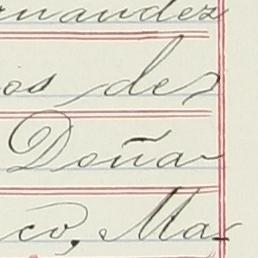 rnandez
os de
Doña
co, Ma-